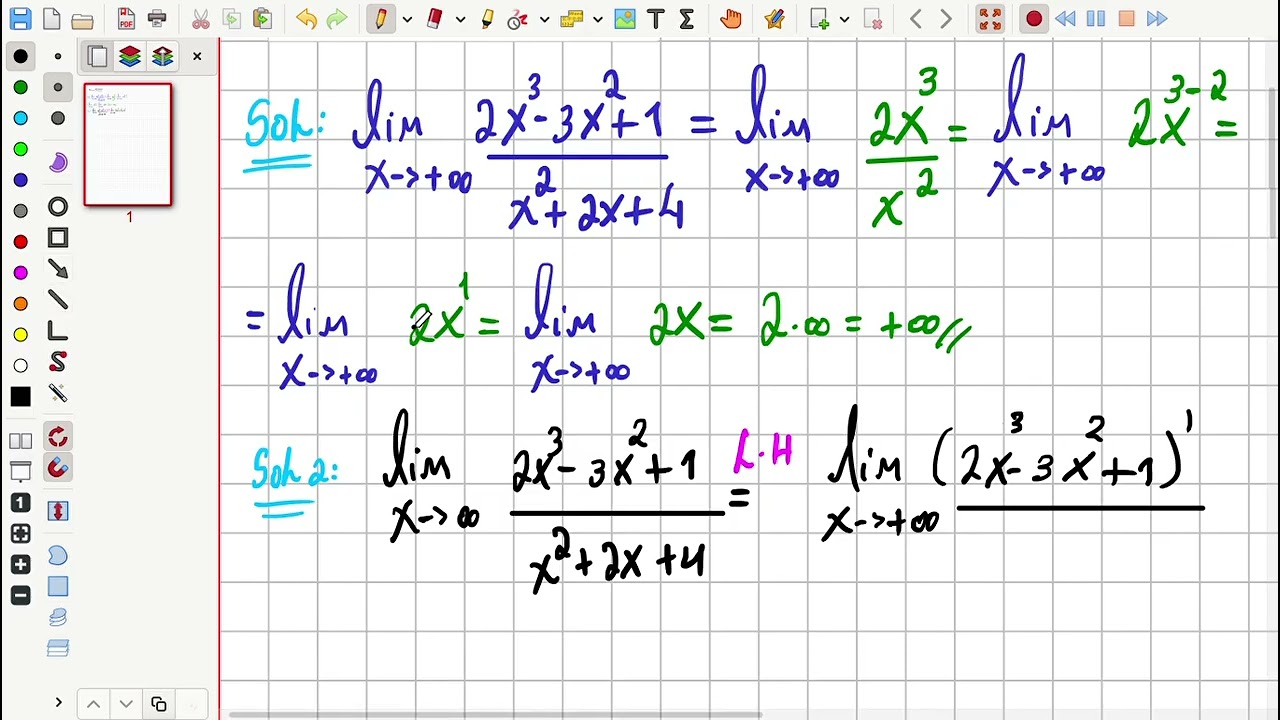 Soln: lim x→+∞ (2x³-3x²+1)/(x²+2x+4) = lim x→+∞ 2x³/x² = lim x→+∞ 2x³⁻² =
= lim x→+∞ 2x¹ = lim x→+∞ 2x = 2·∞ = +∞//
Soln 2: lim x→∞ (2x³-3x²+1)/(x²+2x+4) L.H = lim x→+∞ (2x³-3x²+1)'
1